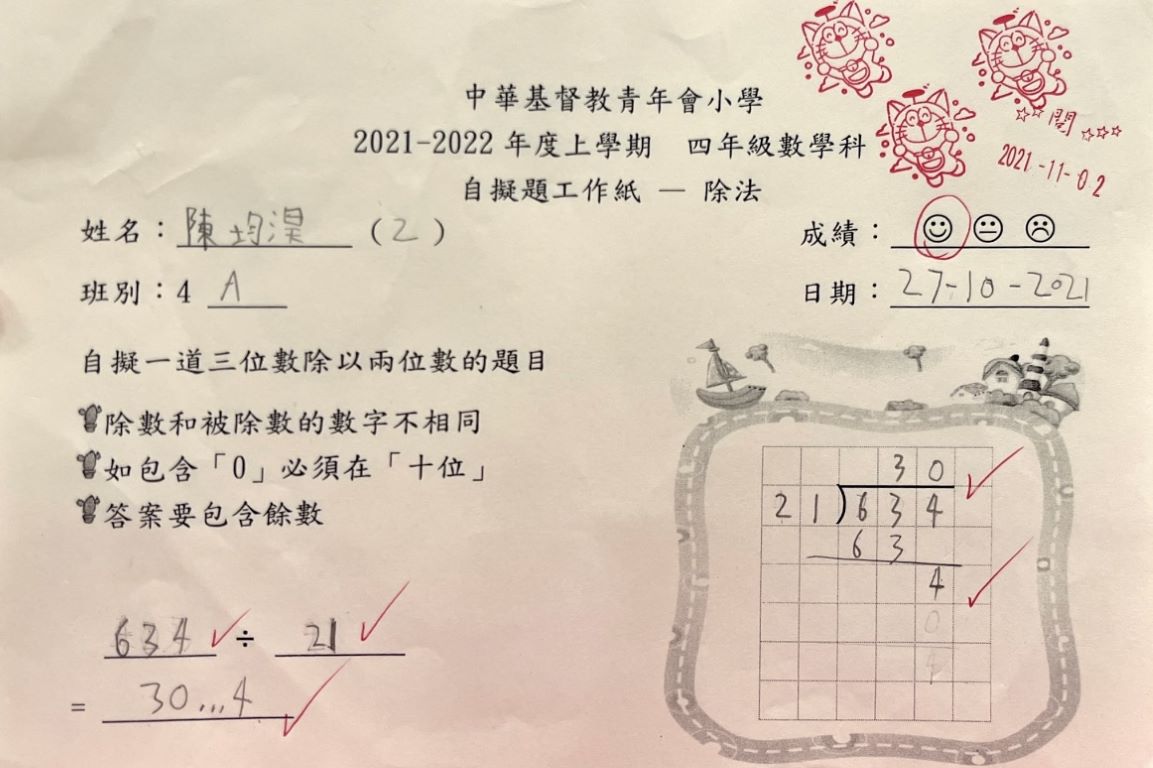 中華基督教青年會小學
2021-2022 年度上學期 四年級數學科
自擬題工作紙 — 除法
閱
2021-11-02
姓名：陳均淏 (2)
成績：
班別：4 A
日期：27-10-2021
自擬一道三位數除以兩位數的題目
除數和被除數的數字不相同
如包含「0」必須在「十位」
答案要包含餘數
30
21)634
63
4
0
4
634 ÷ 21
= 30...4